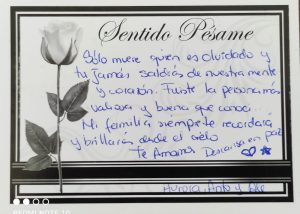 Sentido Pésame
Sólo muere quien es olvidado y
tu jamás saldrás de nuestra mente
y corazón. Fuiste la persona más
valiosa y buena que conocí...
Mi familia siempre te recordará
y brillarás desde el cielo
Te Amamos Descansa en paz
Aurora, Anto y